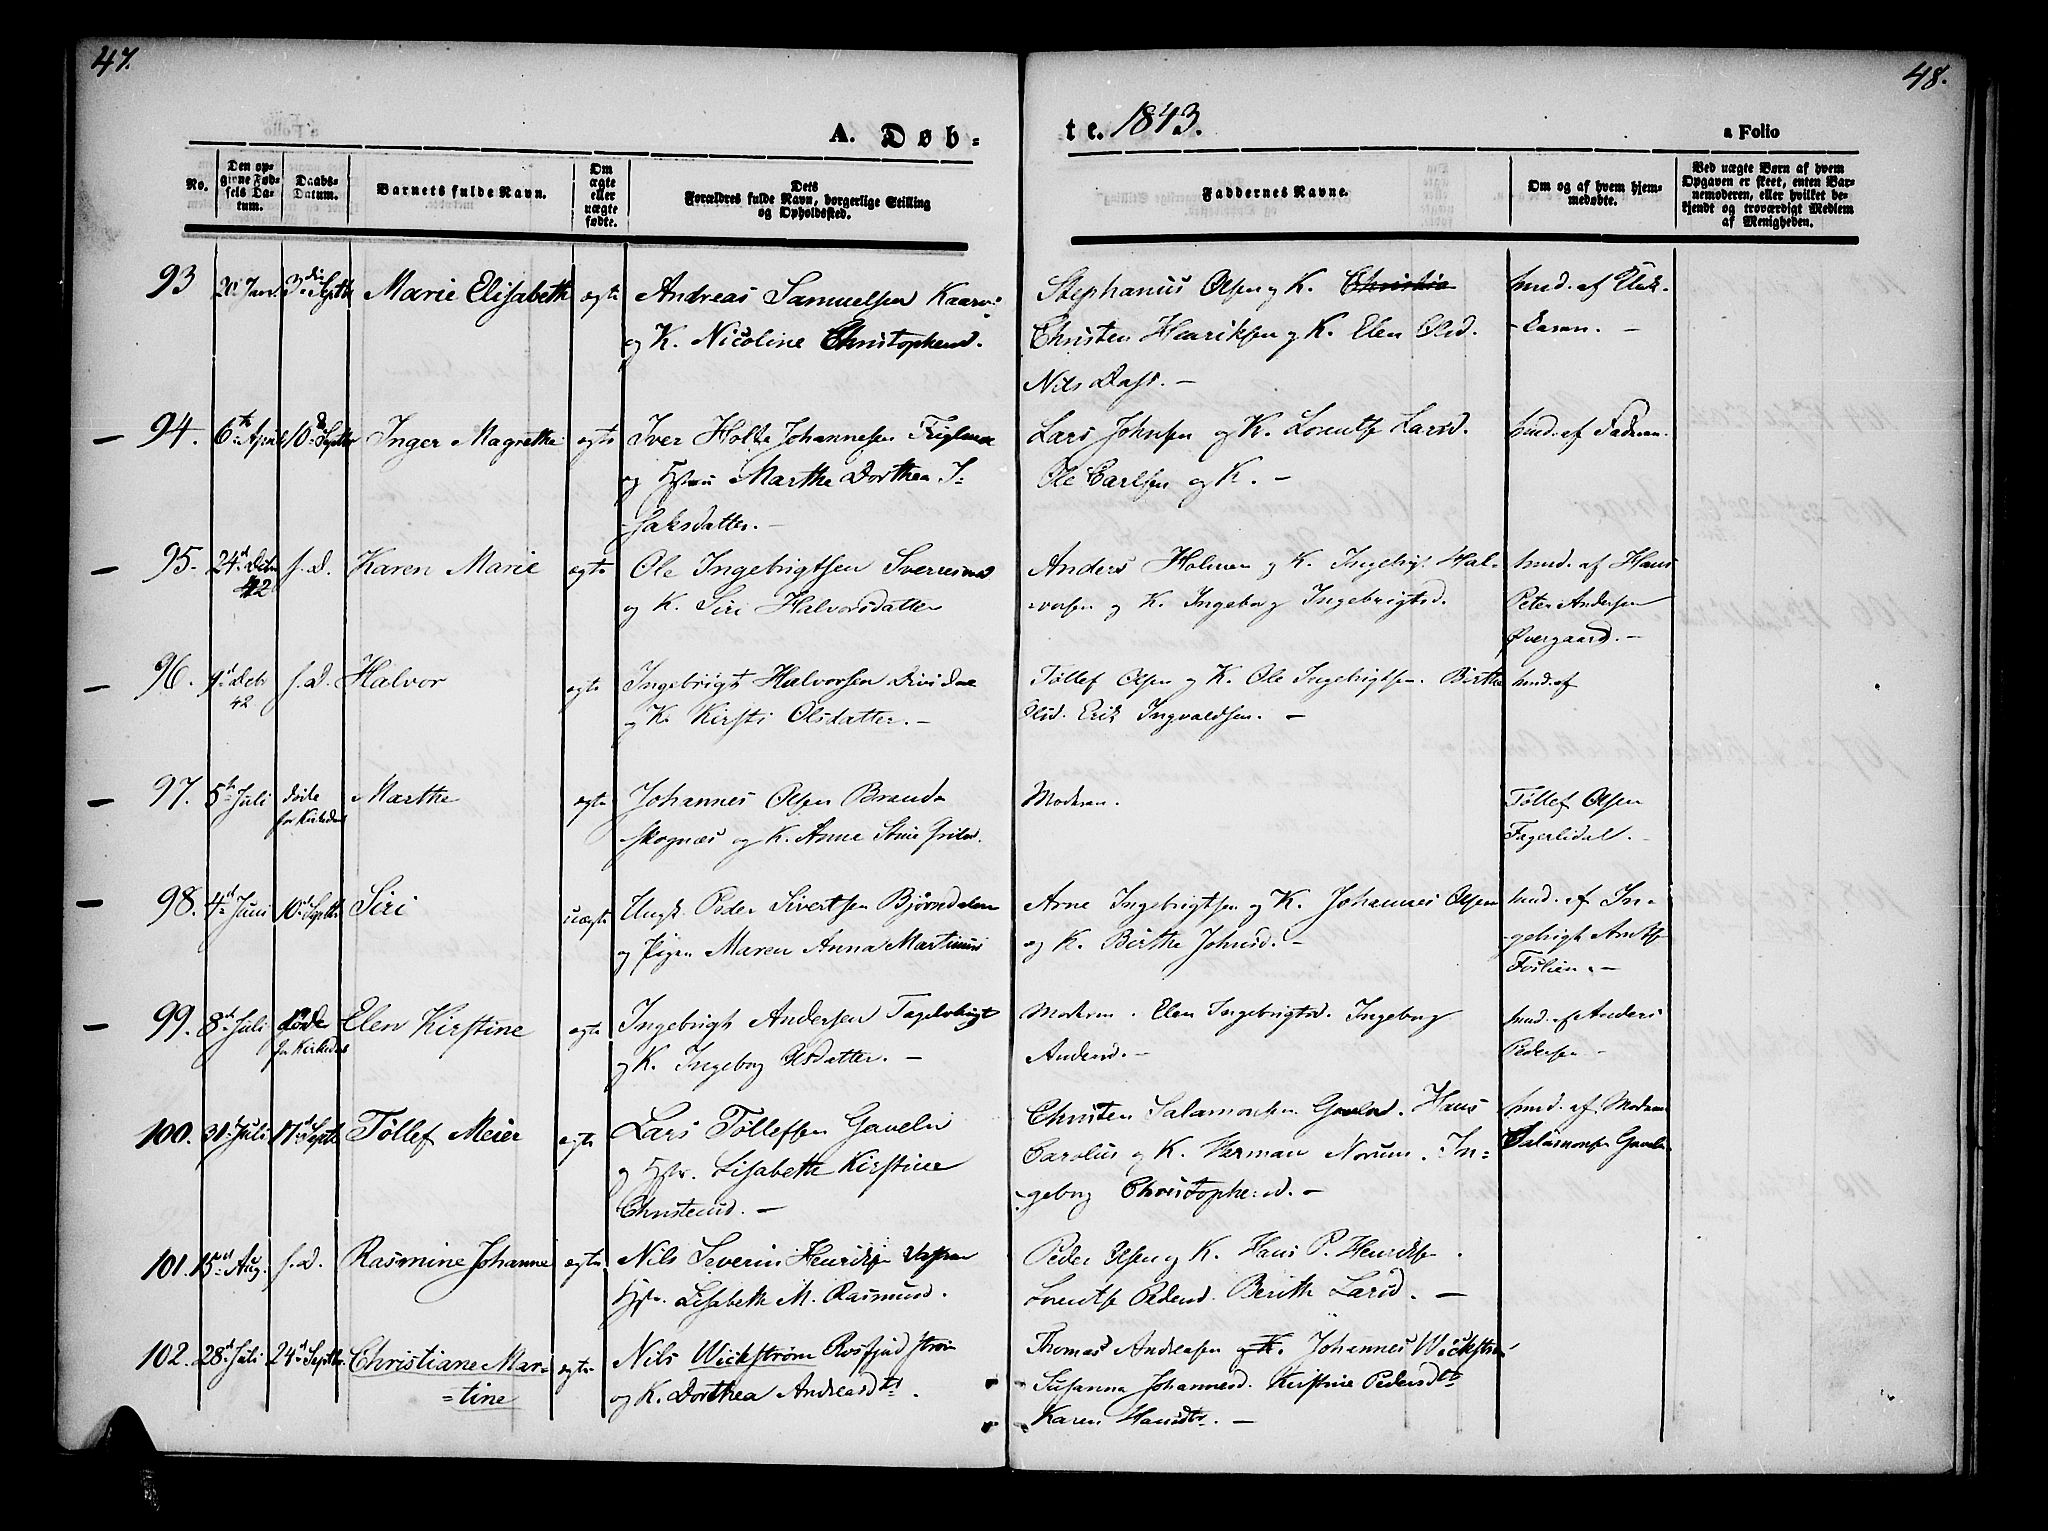 47.
48.
A. Døb-
te. 1843.
a Folio
No.
Den op-
givne Fød-
sels Da-
tum.
Daabs-
Datum.
Barnets fulde Navn.
Om
ægte
eller
uægte
fødte.
Dets
Forældres fulde Navn, borgerlige Stilling
og Opholdssted.
Faddernes Navne.
Om og af hvem hjem-
medøbte.
Ved uægte Børn af hvem
Opgaven er skeet, enten Bar-
nemoderen, eller hvilket be-
kjendt og troværdigt Medlem
af Menigheden.
93 3die Septb Marie Elisabeth ægte Andreas Samuelsen
og K. Nicoline Christophersd.
Stephanus Olsen og K. Christen Henriksen og K. Elen Olsd.
Nils Dass. -
hmd. af
94. 6te April 10d Septbr Inger Magrethe ægte Iver Holte Johannesen
og Hstru Martha Dorthea I-
saksdatter. -
Lars Johnsen og K. Lorentse Larsd.
Ole Carlsen og K. -
hmd. af Faderen.
95. 24d Debr 42 s. D. Karen Marie ægte Ole Ingebrigtsen
og K. Siri Halvorsdatter
Anders Holmen og K. Ingebrigt Hal-
vorsen og K. Ingeborg Ingebrigtsd.
hmd. af Hans
Peter Andersen
Øvergaard. -
96. 1d Debr 42 s. D. Halvor ægte Ingebrigt Halvorsen
og K. Kirsti Olsdatter. -
Tøllef Olsen og K. Ole Ingebrigtsen. Birthe
Olsd. Erik Ingvaldsen. -
hmd. af
97. 5te Juli døde før Kirkedaab Marthe ægte Johannes Olsen Brands-
skognæs og K. Anne
Moderen.
Tøllef Olsen
Fagerlidal. -
98. 4d Juni 10d Septbr Siri uægte Ungk. Peder Sivertsen Bjørndalen
og Pigen Maren Anna
Arne Ingebrigtsen og K. Johannes Olsen
og K. Birthe Johnsd. -
hmd. af In-
gebrigt Arntss.
Foslien. -
99. 8d Juli døde før Kirkedaab Elen Kirstine ægte Ingebrigt Andersen
og K. Ingeborg Olsdatter. -
Moderen. Elen Ingebrigtsd. Ingeborg
Andersd. -
hmd. af Anders
Pedersen -
100. 31 Juli 17d Septb Tøllef Meier ægte Lars Tøllefsen Gaveln
og Hstr. Lisabeth Kirstine
Christensd. -
Christen Salamonsen Gaveln. Hans
Carolus og K. Herman Norum. In-
geborg Christophersd. -
hmd. af
Salamonsen Gaveln
101. 15 Aug. s. D. Rasmine Johanne ægte Nils Severin Henriksen
Hstr. Lisabeth M. Rasmusd.
Peder Olsen og K. Hans P. Henriksen.
Lorentse Pedersd. Berith Larsd. -
102. 28d Juli 24d Septbr. Christiane Mar-
=tine ægte Nils Wickstrøm Rosfjordstrøm
og K. Dorthea Andreasdtr.
Thomas Andreasen og K. Johannes Wickstrøm
Susanna Johannesd. Kirstine Pedersdtr
Karen Hansdtr. -